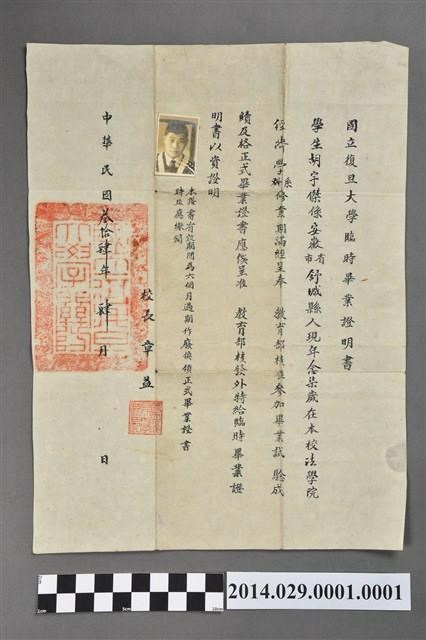 國立復旦大學臨時畢業證明書
學生胡宇傑係安徽省市舒城縣人現年念柒歲在本校法學院
經濟學系科修業期滿經呈奉 教育部核准參加畢業試驗成
績及格正式畢業證書應俟呈准 教育部核發外特給臨時畢業證
明書以資證明
本證書有效期間為六個月過期作廢換領正式畢業證書
時並應繳銷
校長 章益
中華民國叁拾肆年肆月 日
2014.029.0001.0001